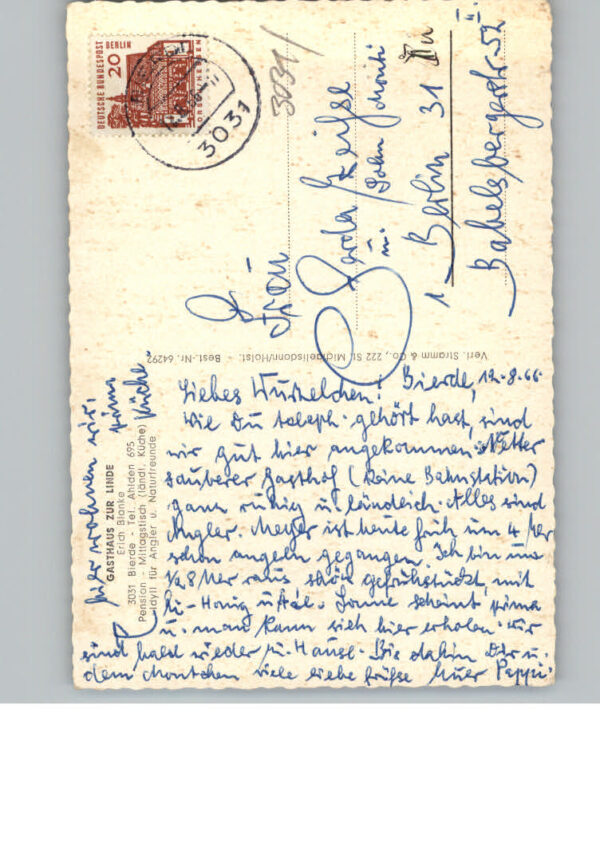 DEUTSCHE BUNDESPOST BERLIN
20
TORSCHE HESSEN
3031
3031/
Frau
Gerda
u. Sohn
1 Berlin 31
Babelsbergerstr. 52
II.
Verl. Stramm & Co., 222 St. Michaelisdonn/Holst. - Best.-Nr. 64292
hier wohnen wir.
prima
Küche
GASTHAUS ZUR LINDE
Erich Blanke
3031 Bierde - Tel. Ahlden 695
Pension - Mittagstisch (ländl. Küche)
Idyll für Angler u. Naturfreunde
Bierde, 12.8.66
Liebes Wurzelchen!
Wie Du teleph. gehört hast, sind
wir gut hier angekommen. Netter
sauberer Gasthof (keine Bahnstation)
ganz ruhig u. ländlich. Alles sind
Angler. Meyer ist heute früh um 4 Uhr
schon angeln gegangen. Ich bin um
½8 Uhr raus schön gefrühstückt, mit
Ei-Honig u. Sonne scheint prima
u. man kann sich hier erholen. Wir
sind bald wieder zu Hause. Bis dahin Dir u.
dem viele liebe Grüße Euer Peppi